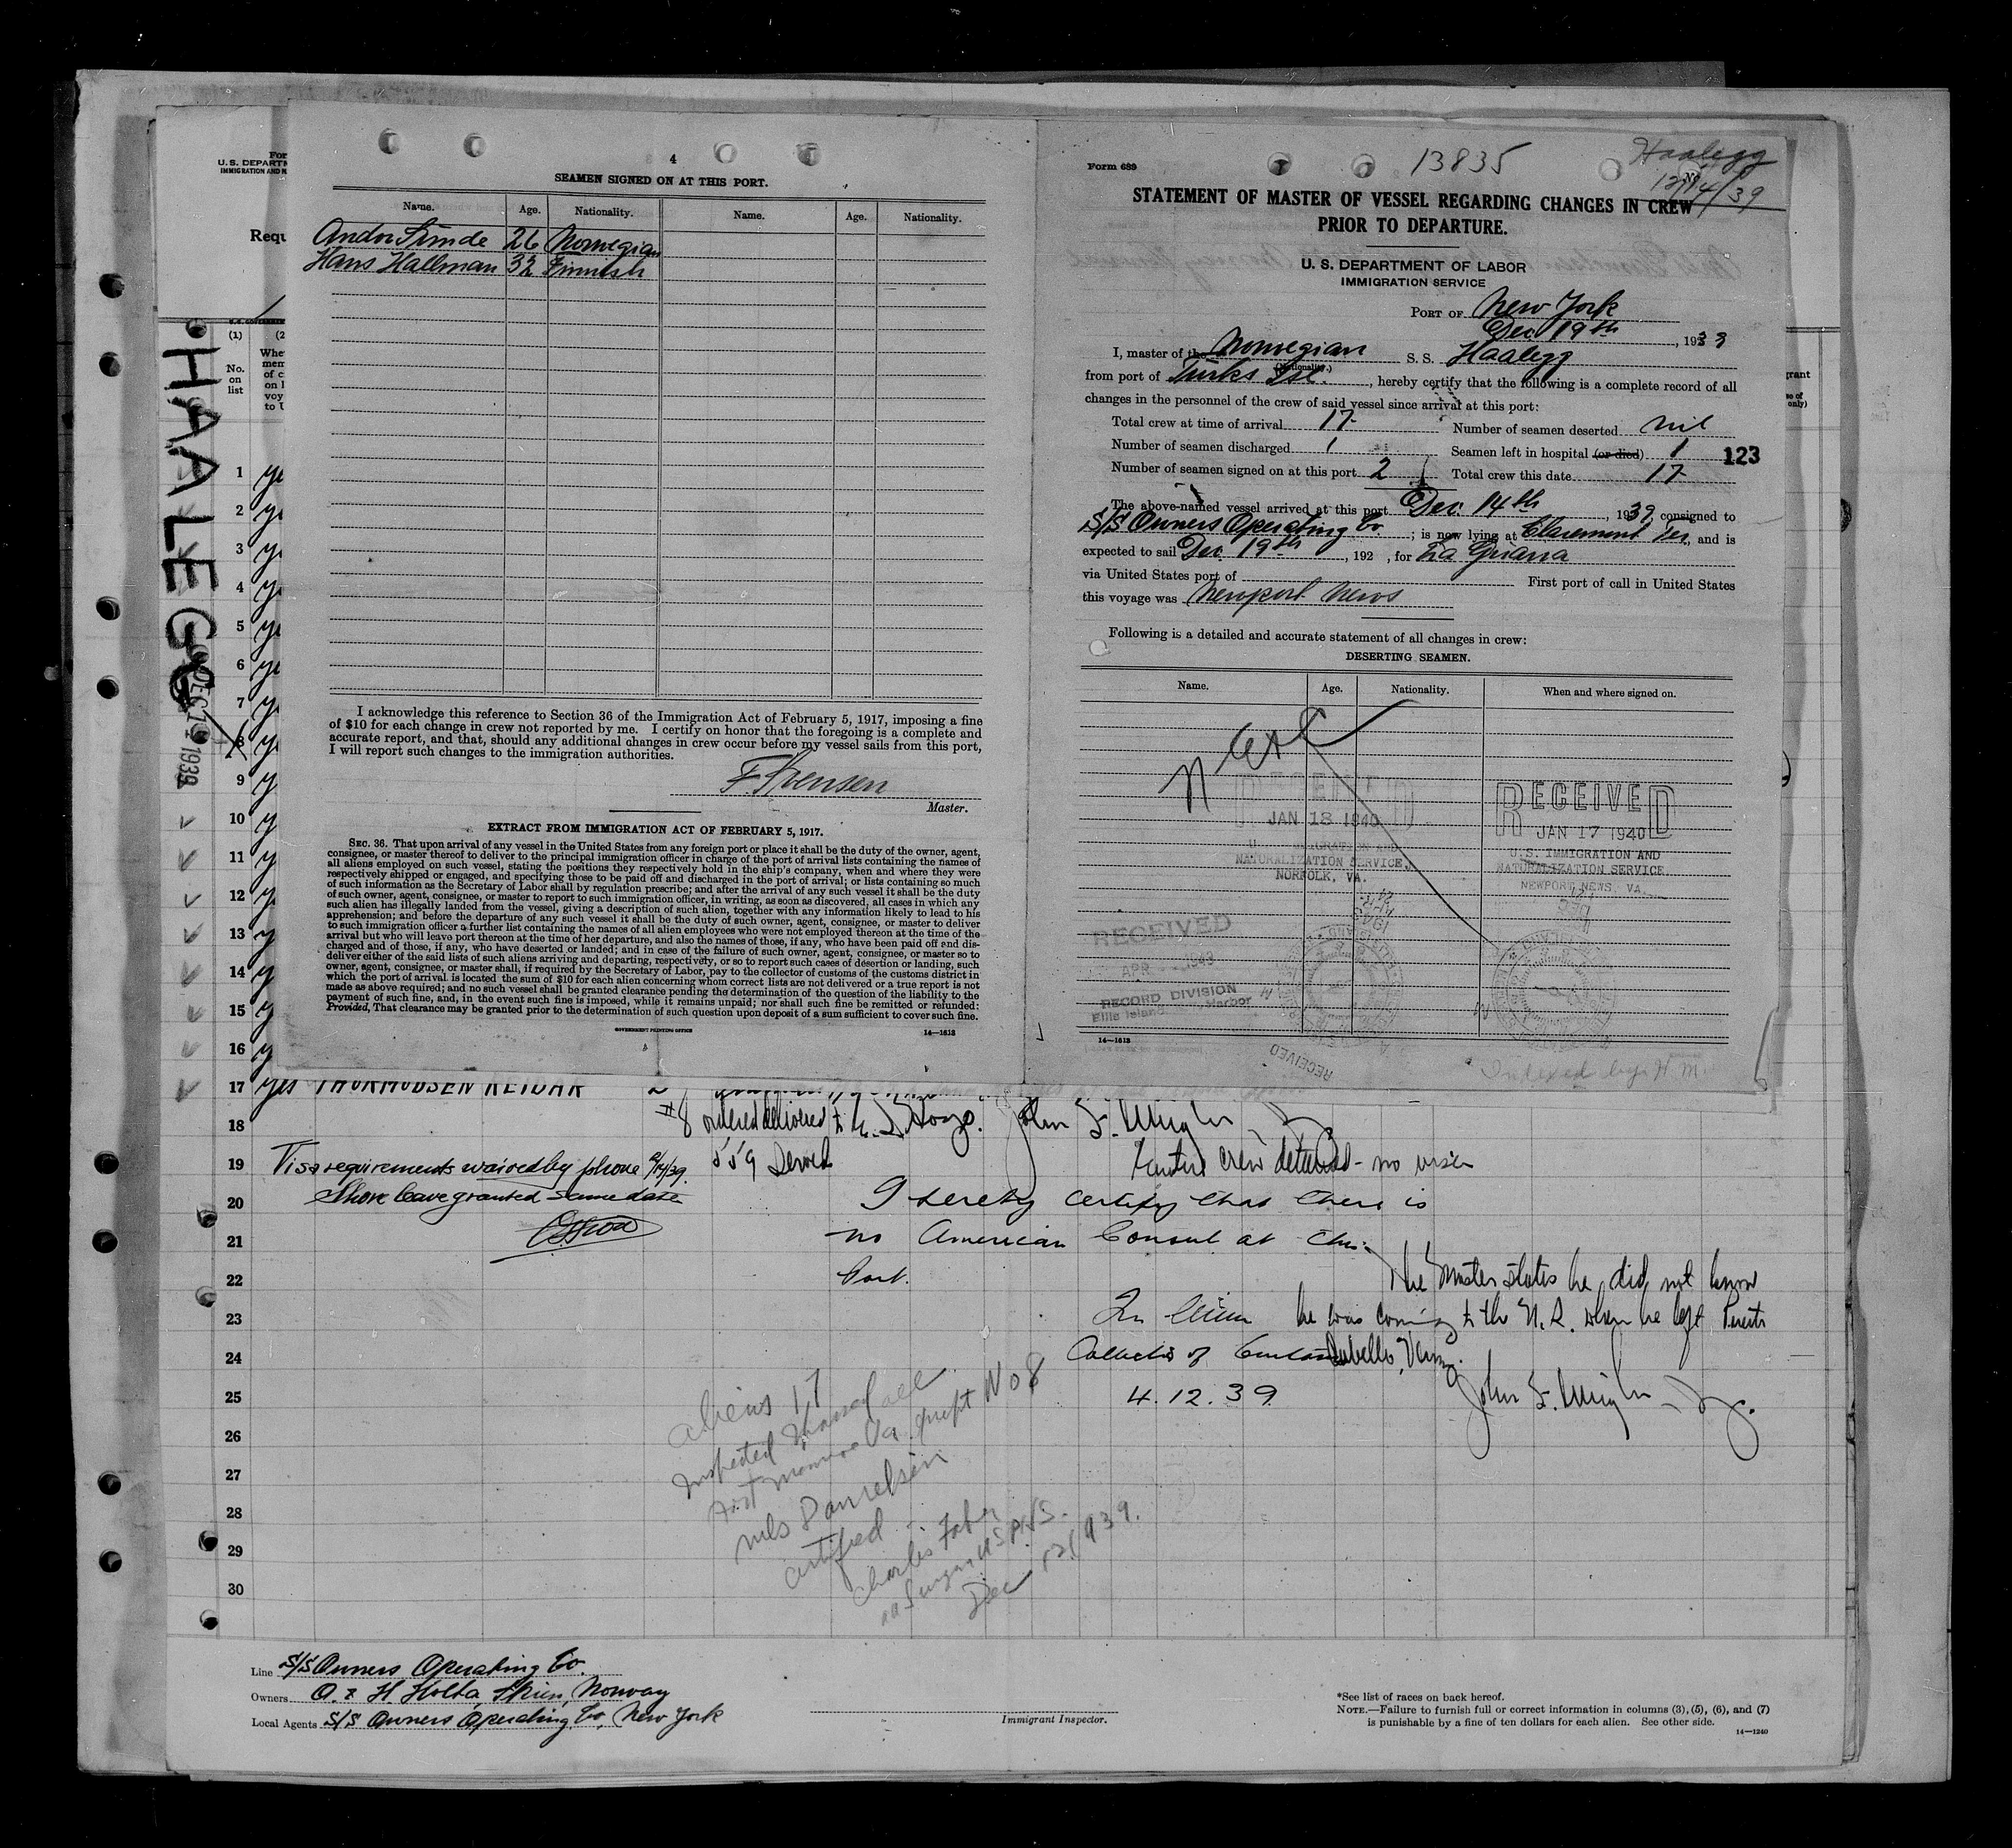 4
SEAMEN SIGNED ON AT THIS PORT.
Name. Age. Nationality. Name. Age. Nationality.
Andor Simde 26 Norwegian
Hans Hallman 32 Finnish
I acknowledge this reference to Section 36 of the Immigration Act of February 5, 1917, imposing a fine
of $10 for each change in crew not reported by me. I certify on honor that the foregoing is a complete and
accurate report, and that, should any additional changes in crew occur before my vessel sails from this port,
I will report such changes to the immigration authorities.
Master.
EXTRACT FROM IMMIGRATION ACT OF FEBRUARY 5, 1917.
SEC. 36. That upon arrival of any vessel in the United States from any foreign port or place it shall be the duty of the owner, agent,
consignee, or master thereof to deliver to the principal immigration officer in charge of the port of arrival lists containing the names of
all aliens employed on such vessel, stating the positions they respectively hold in the ship's company, when and where they were
respectively shipped or engaged, and specifying those to be paid off and discharged in the port of arrival; or lists containing so much
of such information as the Secretary of Labor shall by regulation prescribe; and after the arrival of any such vessel it shall be the duty
of such owner, agent, consignee, or master to report to such immigration officer, in writing, as soon as discovered, all cases in which any
such alien has illegally landed from the vessel, giving a description of such alien, together with any information likely to lead to his
apprehension; and before the departure of any such vessel it shall be the duty of such owner, agent, consignee, or master to deliver
to such immigration officer a further list containing the names of all alien employees who were not employed thereon at the time of the
arrival but who will leave port thereon at the time of her departure, and also the names of those, if any, who have been paid off and dis-
charged and of those, if any, who have deserted or landed; and in case of the failure of such owner, agent, consignee, or master so to
deliver either of the said lists of such aliens arriving and departing, respectively, or so to report such cases of desertion or landing, such
owner, agent, consignee, or master shall, if required by the Secretary of Labor, pay to the collector of customs of the customs district in
which the port of arrival is located the sum of $10 for each alien concerning whom correct lists are not delivered or a true report is not
made as above required; and no such vessel shall be granted clearance pending the determination of the question of the liability to the
payment of such fine, and, in the event such fine is imposed, while it remains unpaid; nor shall such fine be remitted or refunded:
Provided, That clearance may be granted prior to the determination of such question upon deposit of a sum sufficient to cover such fine.
GOVERNMENT PRINTING OFFICE 14—1613
Form 689
13835
Haalegg
12/14/39
STATEMENT OF MASTER OF VESSEL REGARDING CHANGES IN CREW
PRIOR TO DEPARTURE.
U. S. DEPARTMENT OF LABOR
IMMIGRATION SERVICE
PORT OF New York
Dec 19th, 1939
I, master of the Norwegian S. S. Haalegg
(Nationality.)
from port of Turks Isl., hereby certify that the following is a complete record of all
changes in the personnel of the crew of said vessel since arrival at this port:
Total crew at time of arrival 17 Number of seamen deserted nil
Number of seamen discharged 1 Seamen left in hospital (or died) 1
123
Number of seamen signed on at this port 2 Total crew this date 17
The above-named vessel arrived at this port Dec. 14th, 1939, consigned to
S/S Owners Operating Co.; is now lying at Claremont Ter, and is
expected to sail Dec. 19th, 192 , for La Guaira
via United States port of First port of call in United States
this voyage was Newport News
Following is a detailed and accurate statement of all changes in crew:
DESERTING SEAMEN.
Name. Age. Nationality. When and where signed on.
RECEIVED
JAN 18 1940
NATURALIZATION SERVICE,
NORFOLK, VA.
RECEIVED
JAN 17 1940
U.S. IMMIGRATION AND
NATURALIZATION SERVICE,
NEWPORT NEWS, VA.
RECEIVED
APR 1943
RECORD DIVISION
Ellis Island, Harbor
RECEIVED
14—1613
Indexed by H. M.
U. S. DEPARTM
IMMIGRATION AND N
Requ
HAALEGG
DEC 19 1939
(1)
No.
on
list
1 ye
2 ye
3 ye
4 ye
5 ye
6 ye
7 ye
8 ye
9 y
10 y
11 y
12 y
13 y
14 y
15 y
16 y
17 yes THORMODSEN REIDAR
18
#8 ordered delivered to
19 Visa requirements waived by phone 12/14/39.
559 Served
Entire crew detained - no visa
20 Shore leave granted same date
I hereby certify that there is
21 no American Consul at this
22 Port.
The Master states he did not know
23 he was coming to the U.S. when he left Puerto
24 Collector of Customs
Cabello, Venz.
25 4.12.39
26
27
28
29
30
aliens 17
Inspected & passed all
Fort Monroe Va except No 8
Nils Danielsen
certified
Charles Faber
aa Surgeon USPHS.
Dec 12/1939.
Line S/S Owners Operating Co.
Owners O. & H. Holta, Skien, Norway
Local Agents S/S Owners Operating Co, New York
Immigrant Inspector.
*See list of races on back hereof.
NOTE.—Failure to furnish full or correct information in columns (3), (5), (6), and (7)
is punishable by a fine of ten dollars for each alien. See other side.
14—1240